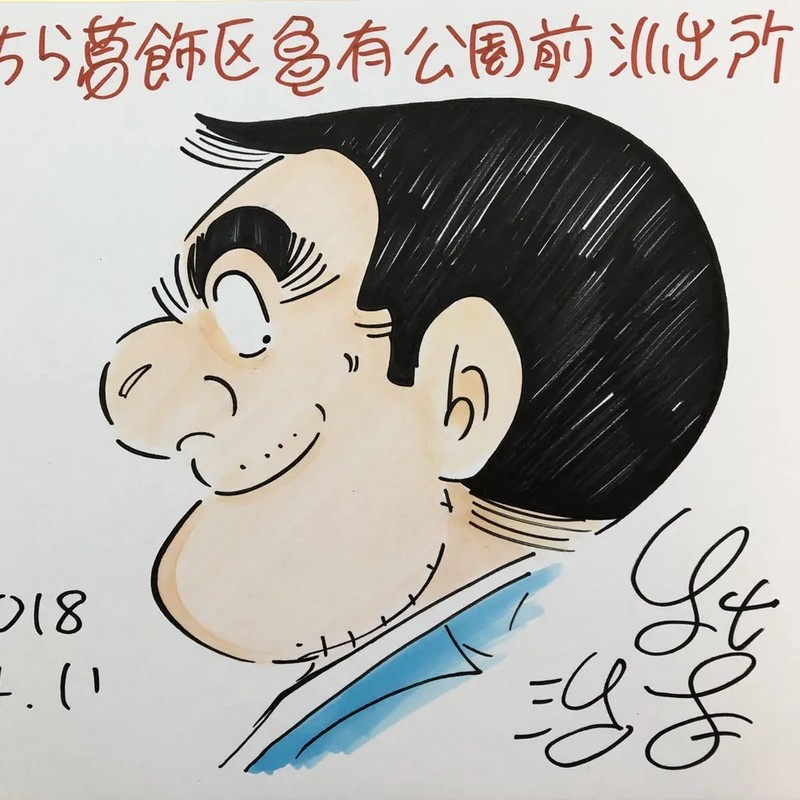 ちら葛飾区亀有公園前派出所
018
4.11